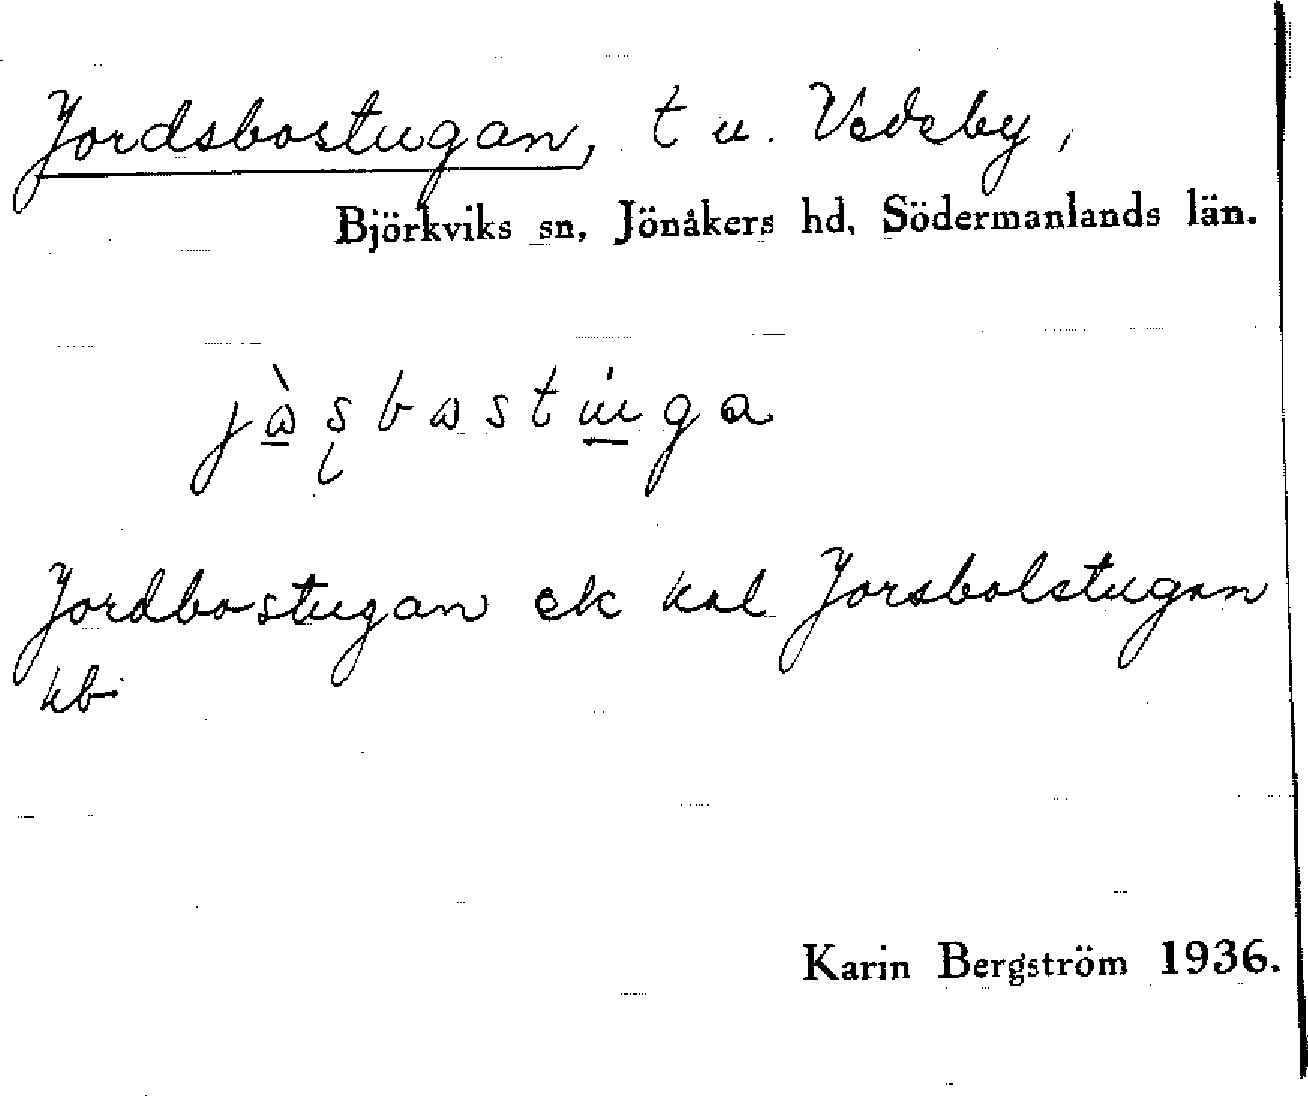 Jordsbostugan, t u. Vedeby,
Björkviks sn, Jönåkers hd, Södermanlands län.
Jordbostugan ek kal Jorsbolstugan
kb
Karin Bergström 1936.